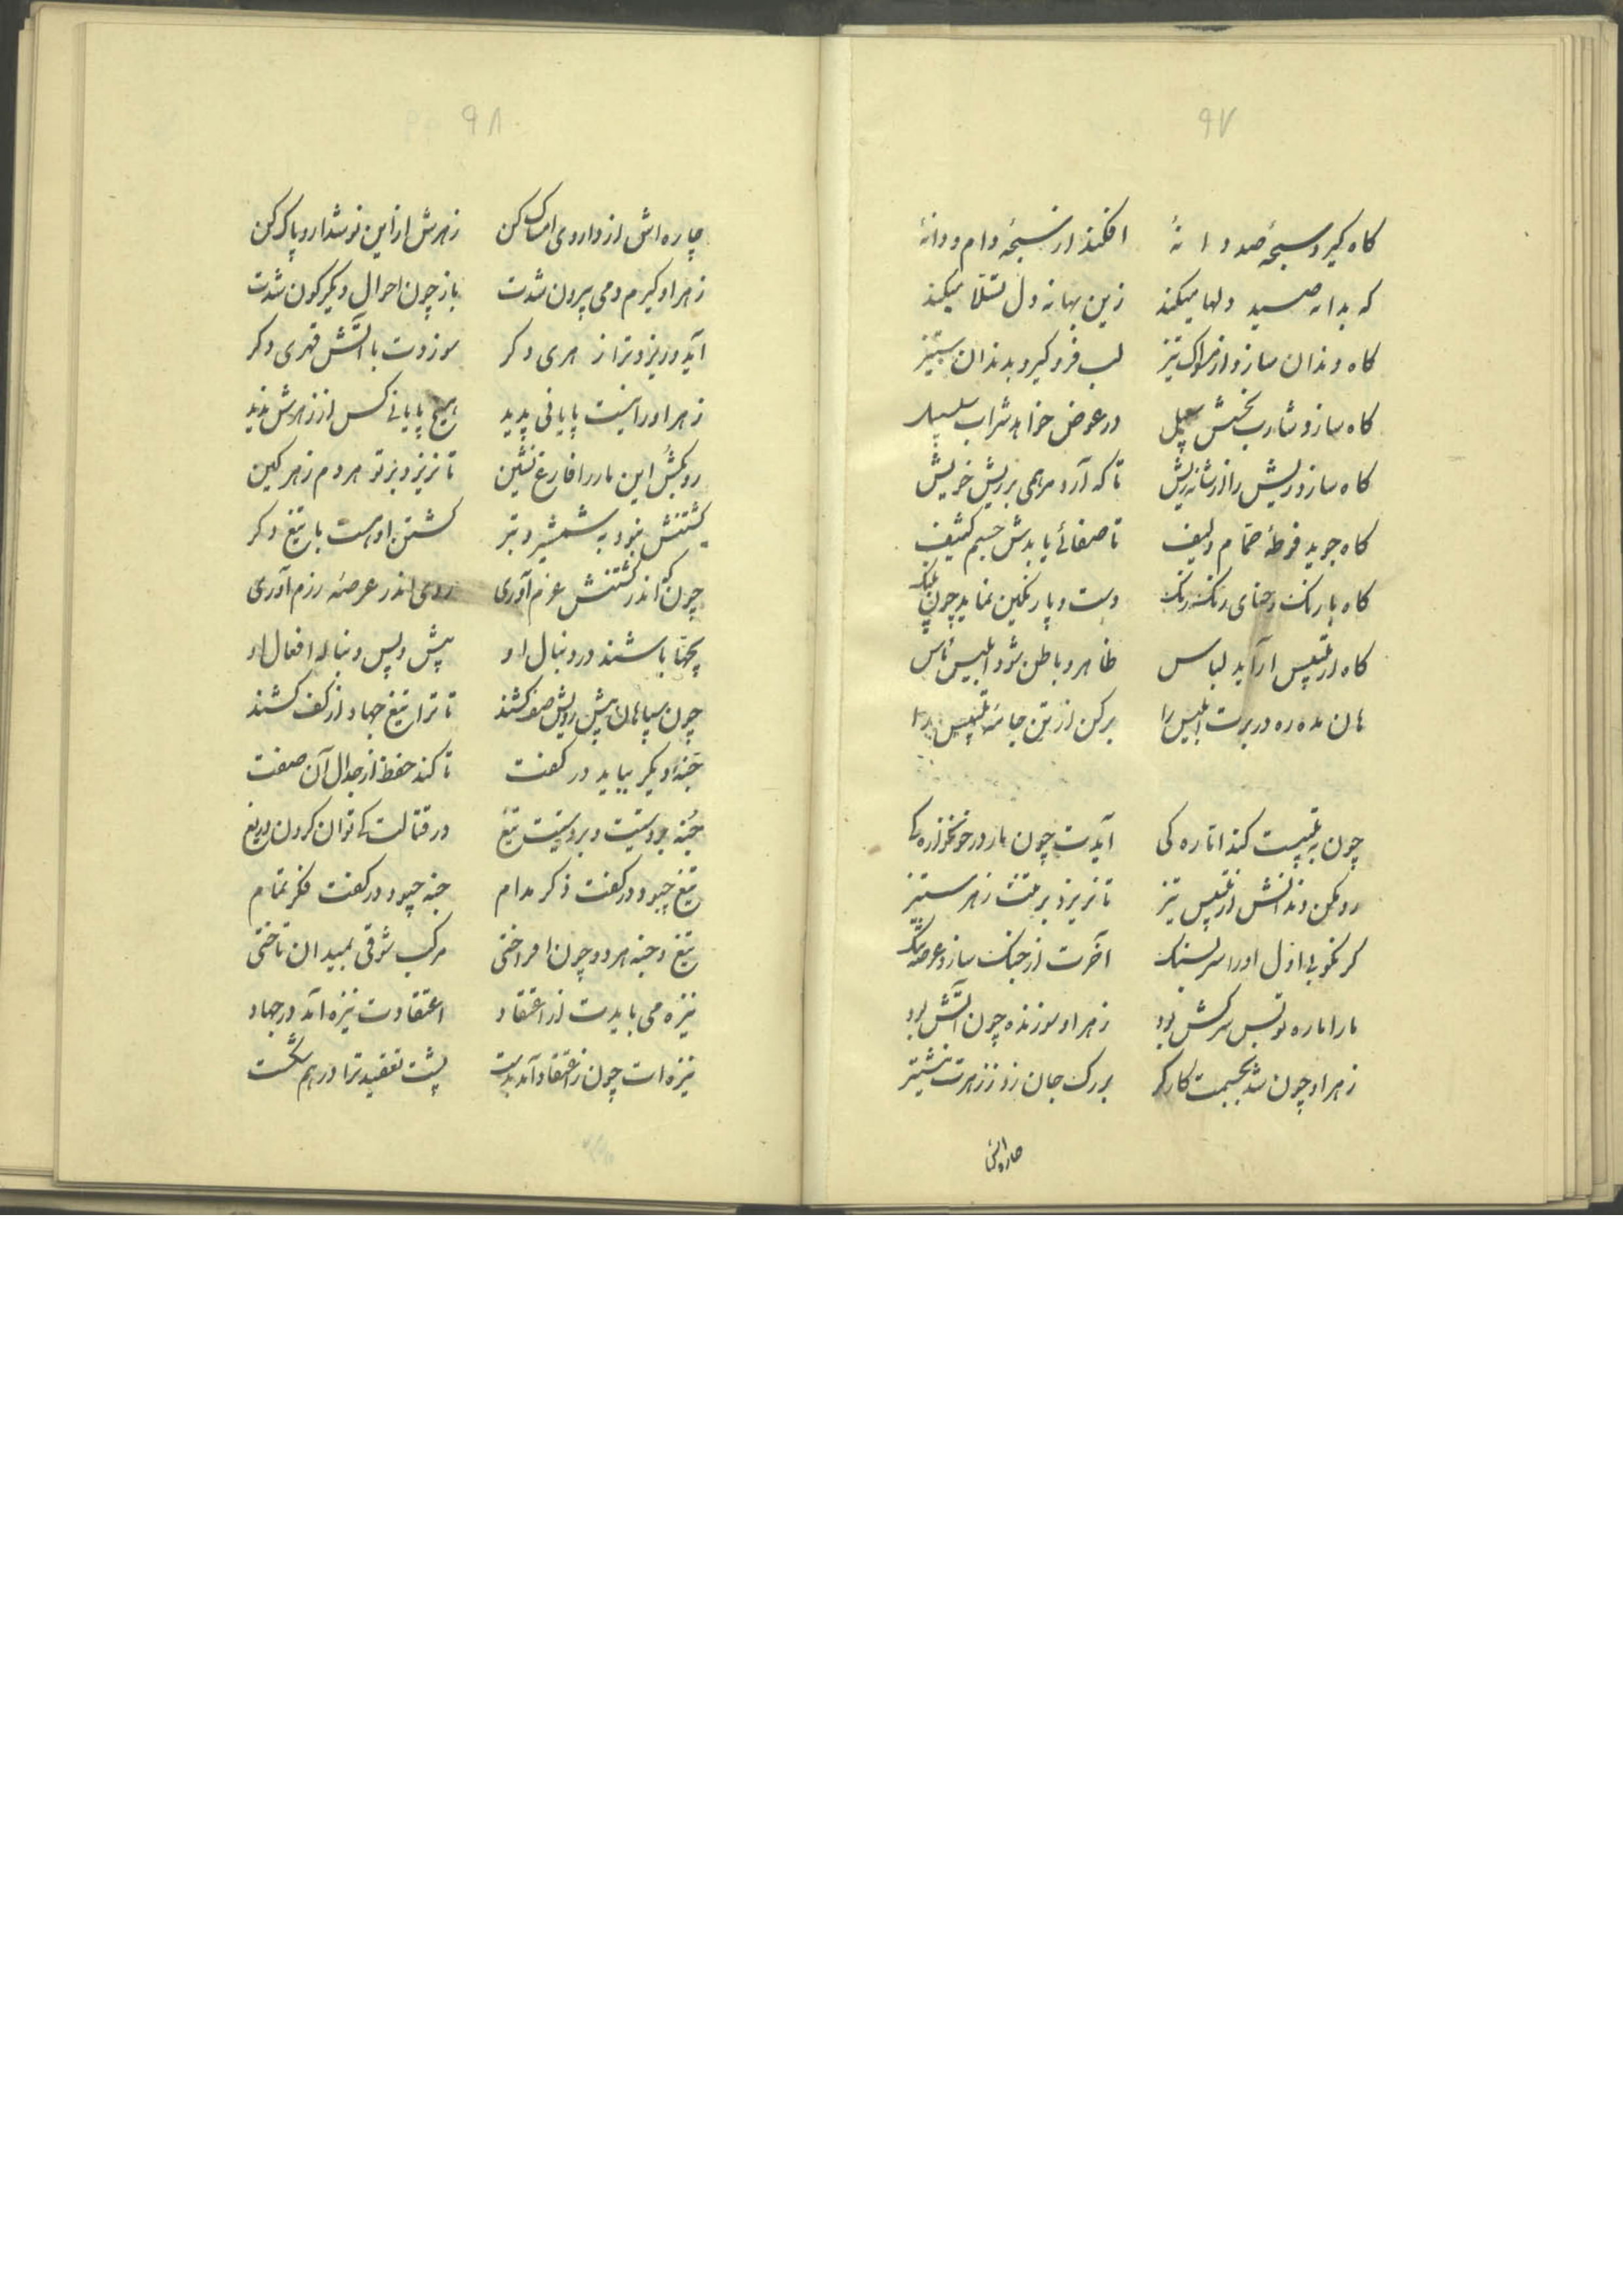 ۹۷
گاه گیرد سبحهٔ صد دانهٔ افکند از سبحه دام و دانهٔ
که بدانه صید دلها میکند زین بهانه دل تسلا میکند
گاه دندان سازد از مسواک تیز لب فرو گیرد بدندان ستیز
گاه سازد شارب خویش سبیل در عوض خواهد شراب سلسبیل
گاه سازد ریش را از شانه ریش تا که آرد مرهمی بر ریش خویش
گاه جوید فوطهٔ حمام و لیف تا صفائی یابدش جسم کثیف
گاه با رنگ و حنای رنگ رنگ دست و پا رنگین نماید چون پلنگ
گاه از تلبیس آراید لباس ظاهر و باطن شود ابلیس ناس
هان مده ره در برت ابلیس را برکن از تن جامهٔ تلبیس را
چون به تلبیست کند اماره کی آیدت چون مار در خونخواره کی
رو بکن دندانش از تلبیس تیز تا نریزد بر تنت زهر ستیز
گر نکوبی اول او را سر بسنگ آخرت از جنگ سازد عرصه تنگ
مار اماره تو بس سرکش بود زهر او سوزنده چون آتش بود
زهر او چون شد بجسمت کارگر بر رگ جان زد ز زهرت نیشتر
چاره اش
۹۸
چاره اش از داروی امساک کن زهرش از این نوشدارو پاک کن
زهر او گیرم دمی بیرون شدت باز چون احوال دیگرگون شدت
آید و ریزد ترا زهری دگر سوزدت با آتش قهری دگر
زهر او را نیست پایانی پدید هیچ پایانی کس از زهرش ندید
رو بکش این مار را فارغ نشین تا نریزد بر تو هردم زهر کین
کشتنش نبود به شمشیر و تبر کشتن او هست با تیغ دگر
چون که اندر کشتنش عزم آوری روی اندر عرصهٔ رزم آوری
بچها باشند در دنبال او پیش و پس دنباله افعال او
چون سپاهان پیش رویش صف کشند تا ترا تیغ جهاد از کف کشند
جنهٔ دیگر بیاید در کفت تا کند حفظ از جدال آن صفت
جنه بر دستیت و بر دستیت تیغ در قتالت کی توان کردن دریغ
تیغ چبود در کفت ذکر مدام جنه چبود در کفت فکر تمام
تیغ و جنه هر دو چون افراختی مرکب شوقی بمیدان تاختی
نیزه می بایدت از اعتقاد اعتقادت نیزه آمد در جهاد
نیزه ات چون ز اعتقاد آمد بدست پشت تقلید ترا در هم شکست